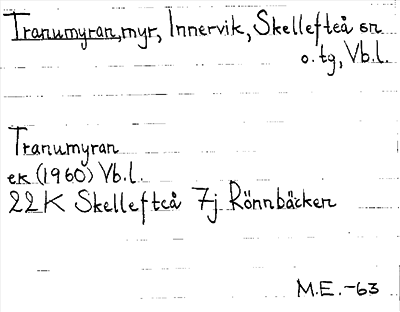 Tranumyran, myr, Innervik, Skellefteå sn
o. tg, Vb.l.
Tranumyran
ek (1960) Vb.l.
22K Skellefteå 7j Rönnbäcken
M.E.-63